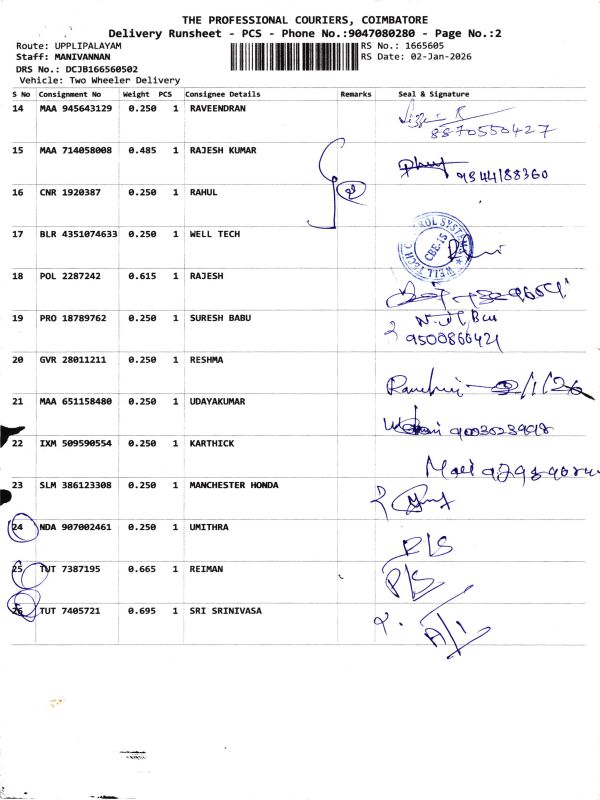 THE PROFESSIONAL COURIERS, COIMBATORE
Delivery Runsheet - PCS - Phone No.:9047080280 - Page No.:2
Route: UPPLIPALAYAM RS No.: 1665605
Staff: MANIVANNAN RS Date: 02-Jan-2026
DRS No.: DCJB166560502
Vehicle: Two Wheeler Delivery
S No Consignment No Weight PCS Consignee Details Remarks Seal & Signature
14 MAA 945643129 0.250 1 RAVEENDRAN
8870550427
15 MAA 714058008 0.485 1 RAJESH KUMAR
9544188360
16 CNR 1920387 0.250 1 RAHUL
17 BLR 4351074633 0.250 1 WELL TECH
CBE-15
18 POL 2287242 0.615 1 RAJESH
19 PRO 18789762 0.250 1 SURESH BABU
9500866421
20 GVR 28011211 0.250 1 RESHMA
21 MAA 651158480 0.250 1 UDAYAKUMAR
22 IXM 509590554 0.250 1 KARTHICK
23 SLM 386123308 0.250 1 MANCHESTER HONDA
24 NDA 907002461 0.250 1 UMITHRA
R/S
25 TUT 7387195 0.665 1 REIMAN
P/S
26 TUT 7405721 0.695 1 SRI SRINIVASA
A/1